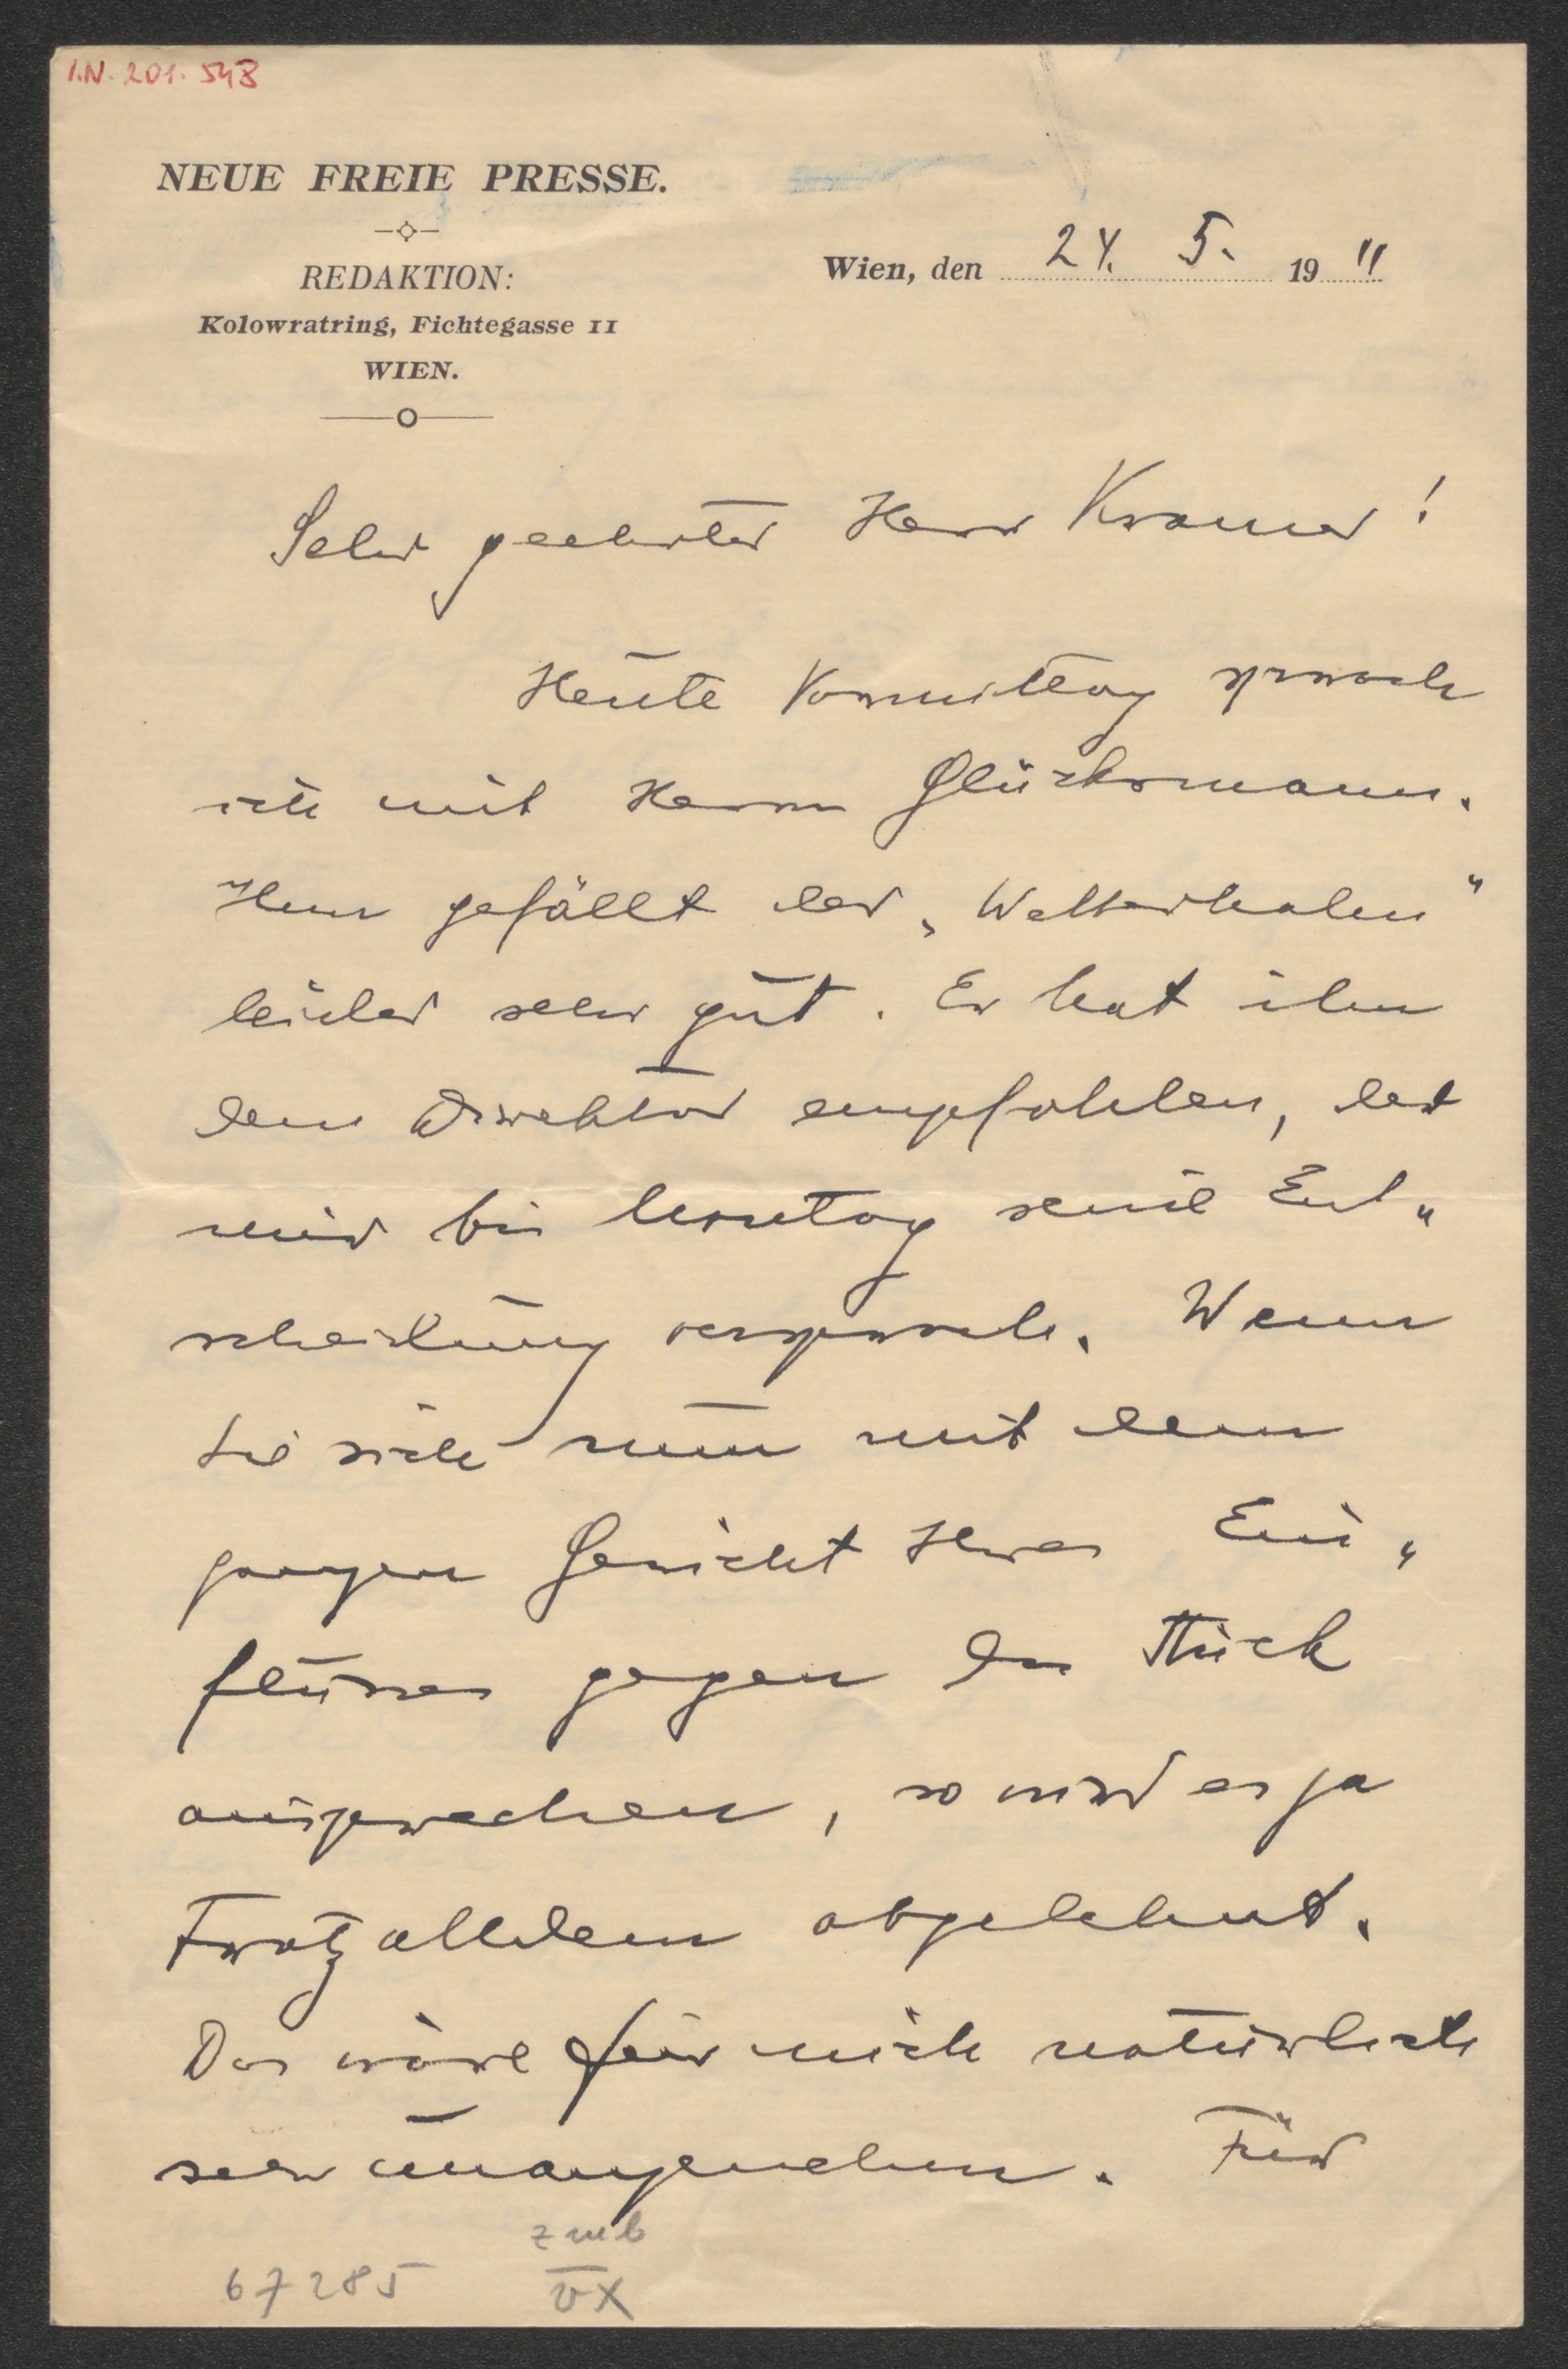 I.N. 201.543
NEUE FREIE PRESSE.
REDAKTION:
Kolowratring, Fichtegasse 11
WIEN.
Wien, den 24. 5. 1911
Sehr geehrter Herr Kramer!
Heute Vormittag sprach
ich mit Herrn Glücksmann.
Ihm gefällt der „Wetterhahn"
leider sehr gut. Er hat ihn
dem Direktor empfohlen, der
mir bis Montag seine Ent„
scheidung versprach. Wenn
Sie sich nun mit dem
ganzen Gewicht Ihres Ein„
flusses gegen das Stück
aussprechen, so wird es ja
trotz alldem abgelehnt.
Das wäre für mich natürlich
sehr unangenehm. Für
67285
zmb